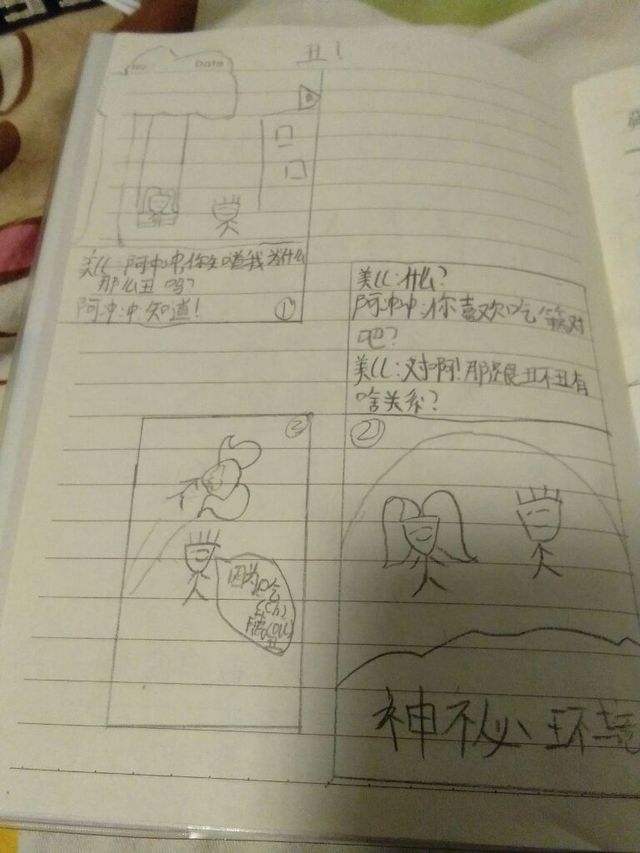 丑！
No.
Date
美〇：阿冲冲，你知道我为什么
那么丑吗？
阿冲冲：知道！
①
美〇：什么？
阿冲冲：你喜欢吃藕对
吧？
美〇：对啊！那跟丑不丑有
啥关系？
②
神秘环境
③
因为吃
(chi)
藕(ou)
丑